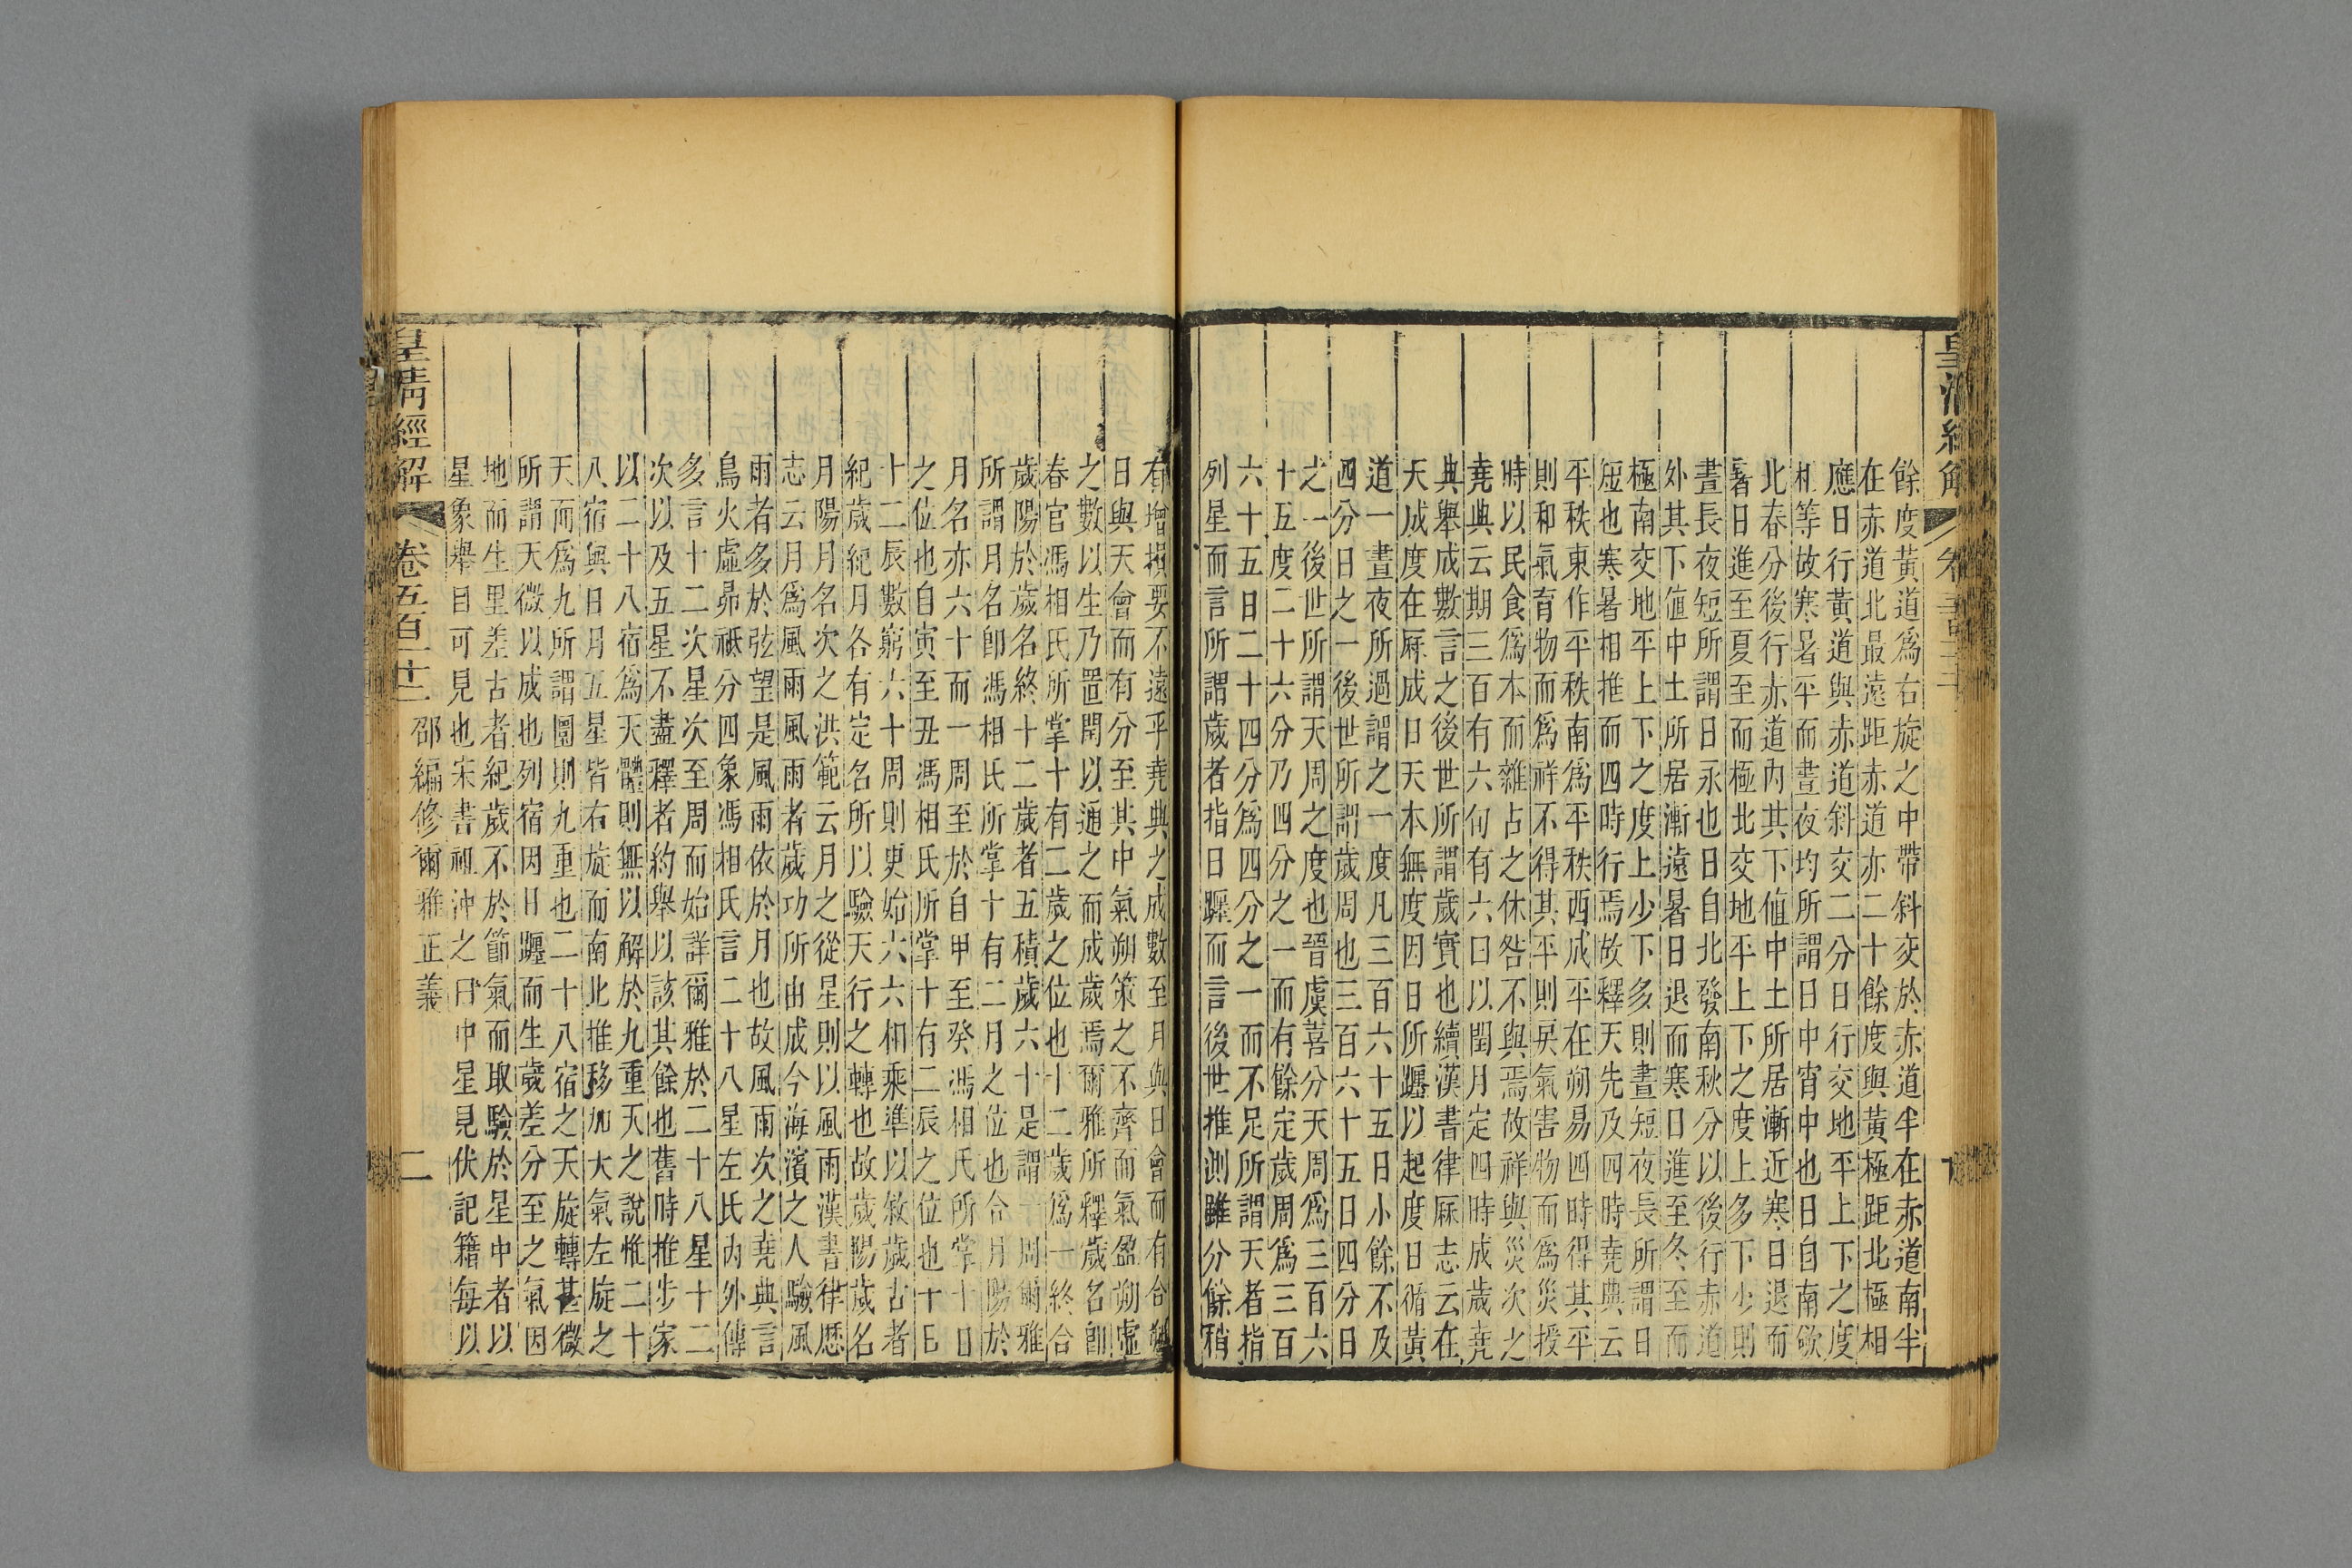 餘度黃道爲右旋之中帶斜交於赤道半在赤道南半
在赤道北最遠距赤道亦二十餘度與黃極距北極相
應日行黃道與赤道斜交二分日行交地平上下之度
相等故寒暑平而晝夜均所謂日中宵中也日自南斂
北春分後行赤道內其下値中土所居漸近寒日退而
暑日進至夏至而極北交地平上下之度上多下少則
晝長夜短所謂日永也日自北發南秋分以後行赤道
外其下値中土所居漸遠暑日退而寒日進至冬至而
極南交地平上下之度上少下多則晝短夜長所謂日
短也寒暑相推而四時行焉故釋天先及四時堯典云
平秩東作平秩南爲平秩西成平在朔易四時得其平
則和氣育物而爲祥不得其平則戾氣害物而爲災授
時以民食爲本而雜占之休咎不與焉故祥與災次之
堯典云期三百有六旬有六日以閏月定四時成歲堯
典舉成數言之後世所謂歲實也續漢書律厤志云在
天成度在厤成日天本無度因日所躔以起度日循黃
道一晝夜所過謂之一度凡三百六十五日小餘不及
四分日之一後世所謂歲周也三百六十五日四分日
之一後世所謂天周之度也晉虞喜分天周爲三百六
十五度二十六分乃四分之一而有餘定歲周爲三百
六十五日二十四分爲四分之一而不足所謂天者指
列星而言所謂歲者指日躔而言後世推測雖分餘稍
有增損要不遠乎堯典之成數至月與日會而有合朔
日與天會而有分至其中氣朔策之不齊而氣盈朔虛
之數以生乃置閏以通之而成歲焉爾雅所釋歲名卽
春官馮相氏所掌十有二歲之位也十二歲爲一終合
歲陽於歲名終十二歲者五積歲六十是謂一周爾雅
所謂月名卽馮相氏所掌十有二月之位也合月陽於
月名亦六十而一周至於自甲至癸馮相氏所掌十日
之位也自寅至丑馮相氏所掌十有二辰之位也十日
十二辰數窮六十周則更始六六相乘準以敘歲古者
紀歲紀月各有定名所以驗天行之轉也故歲陽歲名
月陽月名次之洪範云月之從星則以風雨漢書律厯
志云月爲風雨風雨者歲功所由成今海濱之人驗風
雨者多於弦望是風雨依於月也故風雨次之堯典言
鳥火虛昴祗分四象馮相氏言二十八星左氏內外傳
多言十二次星次至周而始詳爾雅於二十八星十二
次以及五星不盡釋者約舉以該其餘也舊時推步家
以二十八宿爲天體則無以解於九重天之說惟二十
八宿與日月五星皆右旋而南北推移加大氣左旋之
天而爲九所謂圜則九重也二十八宿之天旋轉甚微
所謂天微以成也列宿因日躔而生歲差分至之氣因
地而生里差古者紀歲不於節氣而取驗於星中者以
星象舉目可見也宋書祖沖之曰中星見伏記籍每以
皇清經解
卷五百二十二
邵編修爾雅正義
二